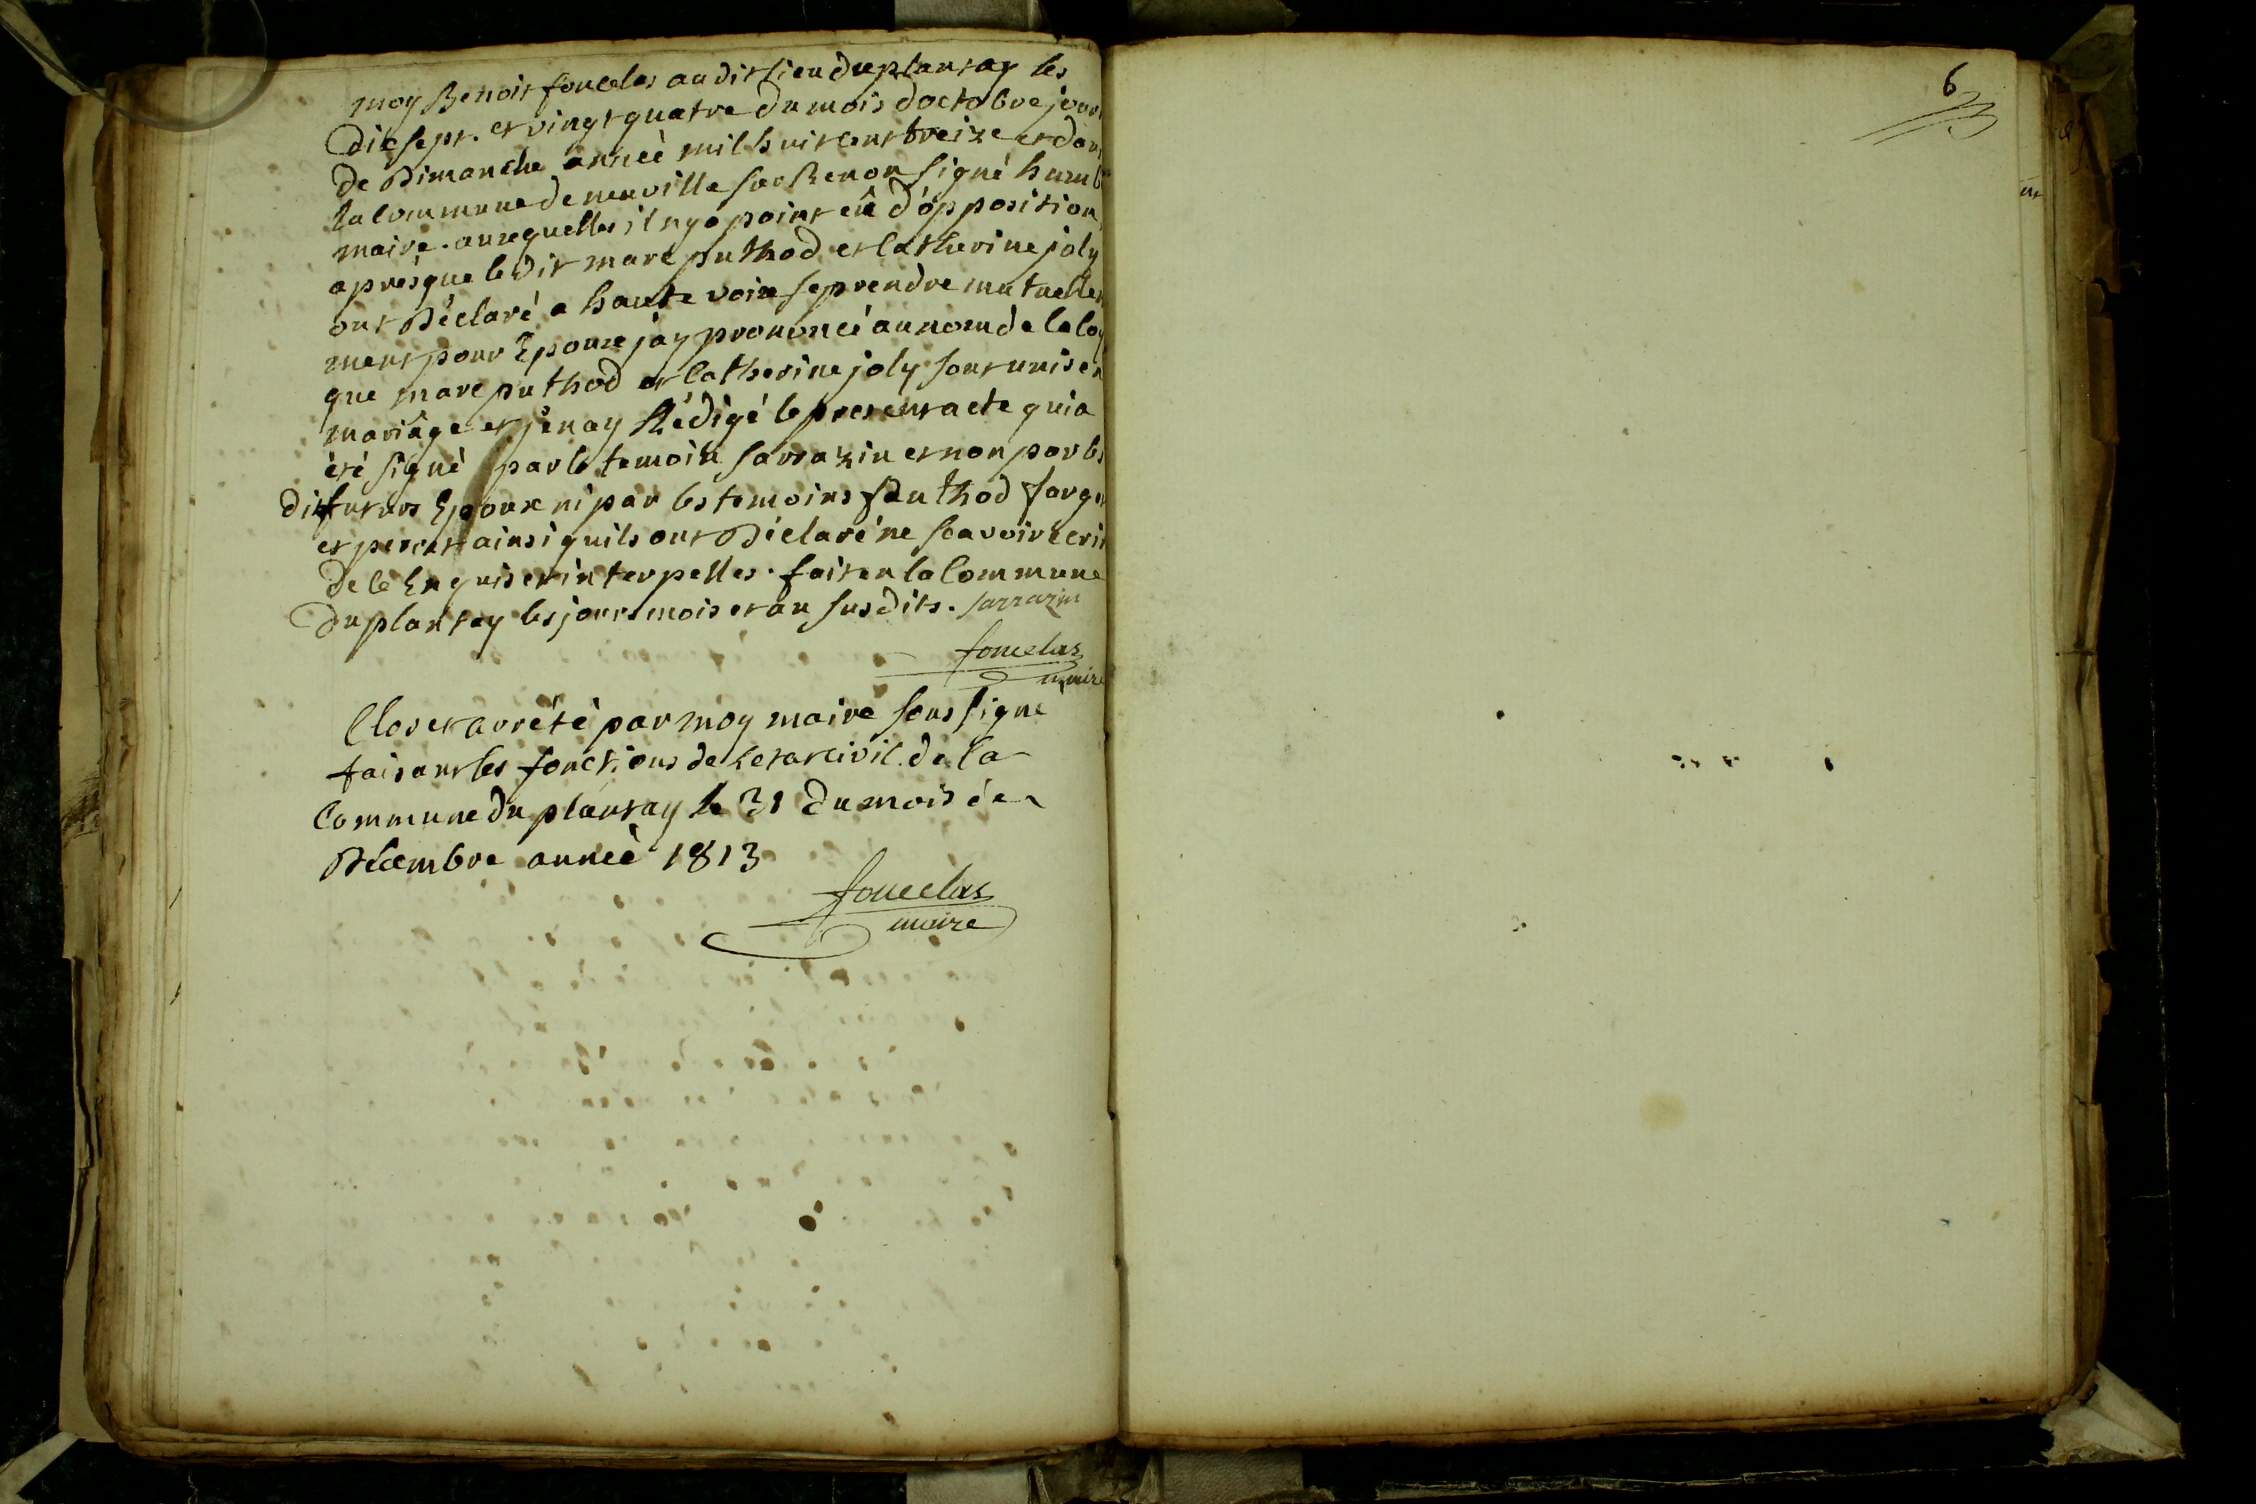 moy Benoit fouclas audit lieu du plantay les
dix sept. et vingt quatre du mois doctobre jour
de Dimanche anneè mil huit cent treize et dans
la Commune de neuville sur Renon signé humb
maire. auxquelles il ny a point eû dópposition
après que le dit marc puthod et Catherine joly
ont Déclaré a haute voix se prendre mutuelle
ment pour Epoux jay prononcé au nom de la loy
que marc puthod et Catherine joly sont unis en
mariage et jen ay Rédigé le present acte qui a
èté signè par le temoin sarrazin et non par les
dit futurs Epoux ni par les temoins puthod farge
et percet ainsi quils ont Déclaré ne scavoir Ecri
de ce Enquis et interpelles. fait en la Commune
du plantay les jour mois et an susdits. sarrazin
fouclas
maire
Clos et arrété par moy maire sous signé
faisant les fonctions de Letat civil de la
Commune du plantay le 31 du mois de
Décembre anneè 1813
fouclas
maire
6